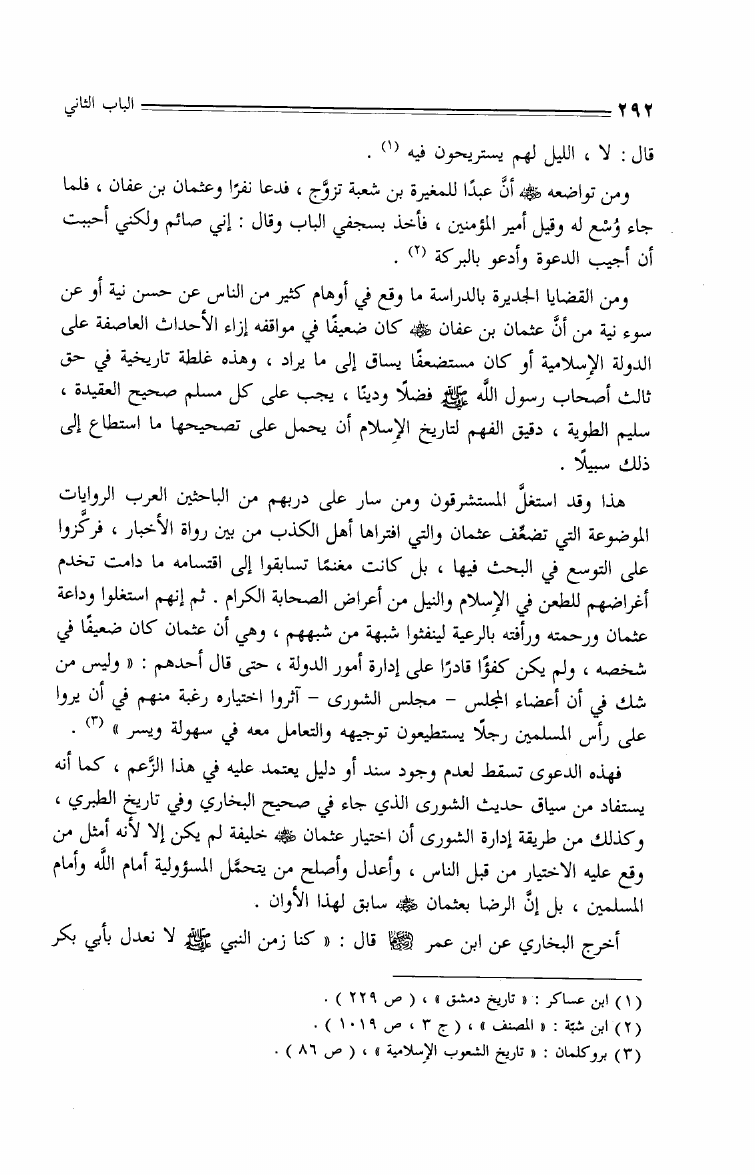 ٢٩٢ الباب الثاني
قال : لا ، الليل لهم يستريحون فيه (١) .
ومن تواضعه ﷺ أنَّ عبدًا للمغيرة بن شعبة تزوَّج ، فدعا نفرًا وعثمان بن عفان ، فلما
جاء وُسْع له وقيل أمير المؤمنين ، فأخذ بسجفي الباب وقال : إني صائم ولكني أحببت
أن أجيب الدعوة وأدعو بالبركة (٢) .
ومن القضايا الجديرة بالدراسة ما وقع في أوهام كثير من الناس عن حسن نية أو عن
سوء نية من أنَّ عثمان بن عفان رضي الله عنه كان ضعيفًا في مواقفه إزاء الأحداث العاصفة على
الدولة الإسلامية أو كان مستضعفًا يساق إلى ما يراد ، وهذه غلطة تاريخية في حق
ثالث أصحاب رسول اللَّه ﷺ فضلًا ودينًا ، يجب على كل مسلم صحيح العقيدة ،
سليم الطوية ، دقيق الفهم لتاريخ الإسلام أن يحمل على تصحيحها ما استطاع إلى
ذلك سبيلًا .
هذا وقد استغلَّ المستشرقون ومن سار على دربهم من الباحثين العرب الروايات
الموضوعة التي تضعِّف عثمان والتي افتراها أهل الكذب من بين رواة الأخبار ، فركَّزوا
على التوسع في البحث فيها ، بل كانت مغنمًا تسابقوا إلى اقتسامه ما دامت تخدم
أغراضهم للطعن في الإسلام والنيل من أعراض الصحابة الكرام . ثم إنهم استغلوا وداعة
عثمان ورحمته ورأفته بالرعية لينفثوا شبهة من شبههم ، وهي أن عثمان كان ضعيفًا في
شخصه ، ولم يكن كفؤًا قادرًا على إدارة أمور الدولة ، حتى قال أحدهم : « وليس من
شك في أن أعضاء المجلس - مجلس الشورى - آثروا اختياره رغبة منهم في أن يروا
على رأس المسلمين رجلًا يستطيعون توجيهه والتعامل معه في سهولة ويسر » (٣) .
فهذه الدعوى تسقط لعدم وجود سند أو دليل يعتمد عليه في هذا الزَّعم ، كما أنه
يستفاد من سياق حديث الشورى الذي جاء في صحيح البخاري وفي تاريخ الطبري ،
وكذلك من طريقة إدارة الشورى أن اختيار عثمان رضي الله عنه خليفة لم يكن إلا لأنه أمثل من
وقع عليه الاختيار من قبل الناس ، وأعدل وأصلح من يتحمَّل المسؤولية أمام اللَّه وأمام
المسلمين ، بل إنَّ الرضا بعثمان رضي الله عنه سابق لهذا الأوان .
أخرج البخاري عن ابن عمر رضي الله عنهما قال : « كنا زمن النبي ﷺ لا نعدل بأبي بكر
(١) ابن عساكر : « تاريخ دمشق » ، ( ص ٢٢٩ ) .
(٢) ابن شبَّة : « المصنف » ، ( ج ٣ ، ص ١٠١٩ ) .
(٣) بروكلمان : « تاريخ الشعوب الإسلامية » ، ( ص ٨٦ ) .